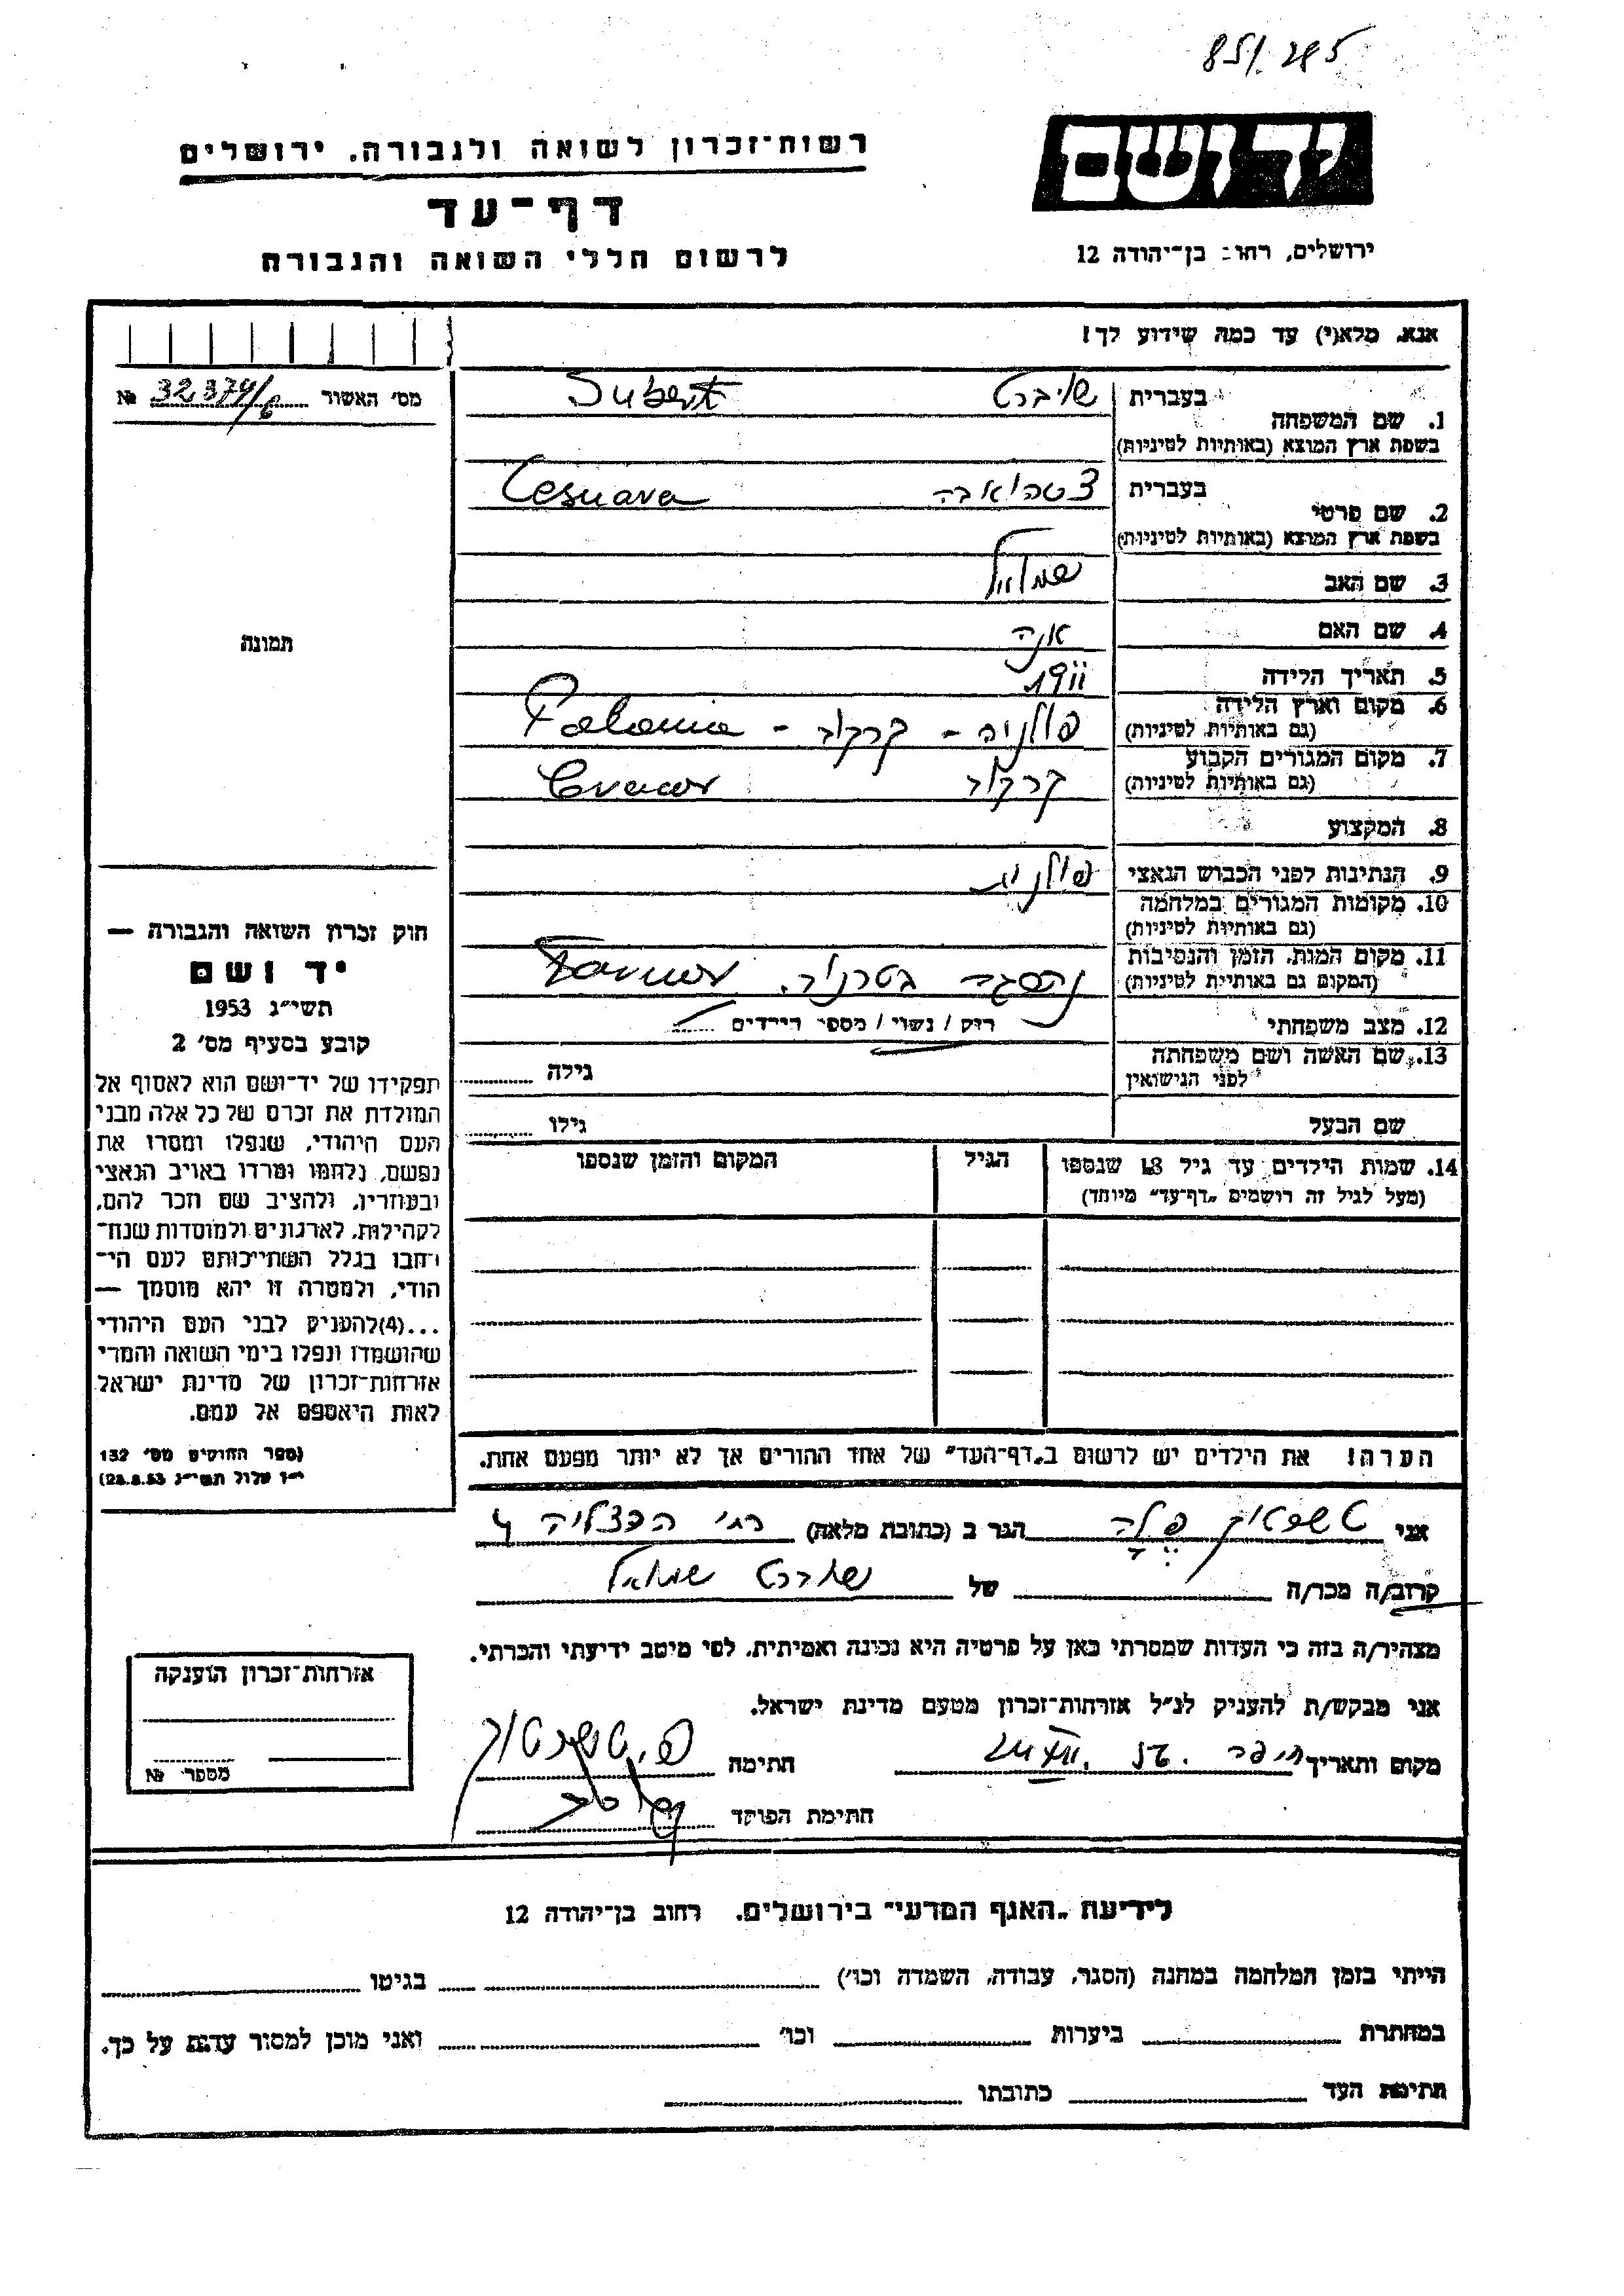 85/.285
יד ושם
ירושלים, רחוב בן־יהודה 12
רשות־זכרון לשואה ולגבורה, ירושלים
דף־עד
לרשום חללי השואה והגבורה
אנא, מלא(י) עד כמה שידוע לך!
מס׳ האשור № 32374/6
תמונה
1. שם המשפחה
בעברית שוברט Subert
בשפת ארץ המוצא (באותיות לטיניות)
2. שם פרטי
בעברית Cesuava
בשפת ארץ המוצא (באותיות לטיניות)
3. שם האב שמואל
4. שם האם אנה
5. תאריך הלידה 1911
6. מקום וארץ הלידה פולניה - קרקוב - Polonia
(גם באותיות לטיניות)
7. מקום המגורים הקבוע קרקוב Cracow
(גם באותיות לטיניות)
8. המקצוע
9. הנתינות לפני הכבוש הנאצי פולנית
10. מקומות המגורים במלחמה
(גם באותיות לטיניות)
11. מקום המות, הזמן והנסיבות נספה בטרנוב. Tarnow
(המקום גם באותיות לטיניות)
12. מצב משפחתי רוק / נשוי / מספר הילדים
13. שם האשה ושם משפחתה
לפני הנישואין
גילה
שם הבעל גילו
14. שמות הילדים עד גיל 18 שנספו הגיל המקום והזמן שנספו
(מעל לגיל זה רושמים „דף־עד” מיוחד)
הערה! את הילדים יש לרשום ב„דף־העד” של אחד ההורים אך לא יותר מפעם אחת.
חוק זכרון השואה והגבורה —
יד ושם
תשי״ג 1953
קובע בסעיף מס׳ 2
תפקידו של יד־ושם הוא לאסוף אל
המולדת את זכרם של כל אלה מבני
העם היהודי, שנפלו ומסרו את
נפשם, נלחמו ומרדו באויב הנאצי
ובעוזריו, ולהציב שם וזכר להם,
לקהילות, לארגונים ולמוסדות שנח־
רבו בגלל השתייכותם לעם הי־
הודי, ולמטרה זו יהא מוסמך —
...(4) להעניק לבני העם היהודי
שהושמדו ונפלו בימי השואה והמרי
אזרחות־זכרון של מדינת ישראל
לאות היאספם אל עמם.
(ספר החוקים מס׳ 132
י״ז אלול תשי״ג 28.8.53)
אני פלה הגר ב (כתובת מלאה) רח׳ הרצליה 4
קרוב/ה מכר/ה של שוברט שמואל
מצהיר/ה בזה כי העדות שמסרתי כאן על פרטיה היא נכונה ואמיתית, לפי מיטב ידיעתי והכרתי.
אני מבקש/ת להעניק לנ״ל אזרחות־זכרון מטעם מדינת ישראל.
מקום ותאריך חיפה חתימה
חתימת הפוקד
אזרחות־זכרון הוענקה
מספר №
לידיעת „האגף המדעי” בירושלים, רחוב בן־יהודה 12
הייתי בזמן המלחמה במחנה (הסגר, עבודה, השמדה וכו׳) בגיטו
במחתרת ביערות וכו׳ ואני מוכן למסור עדות על כך.
חתימת העד כתובתו